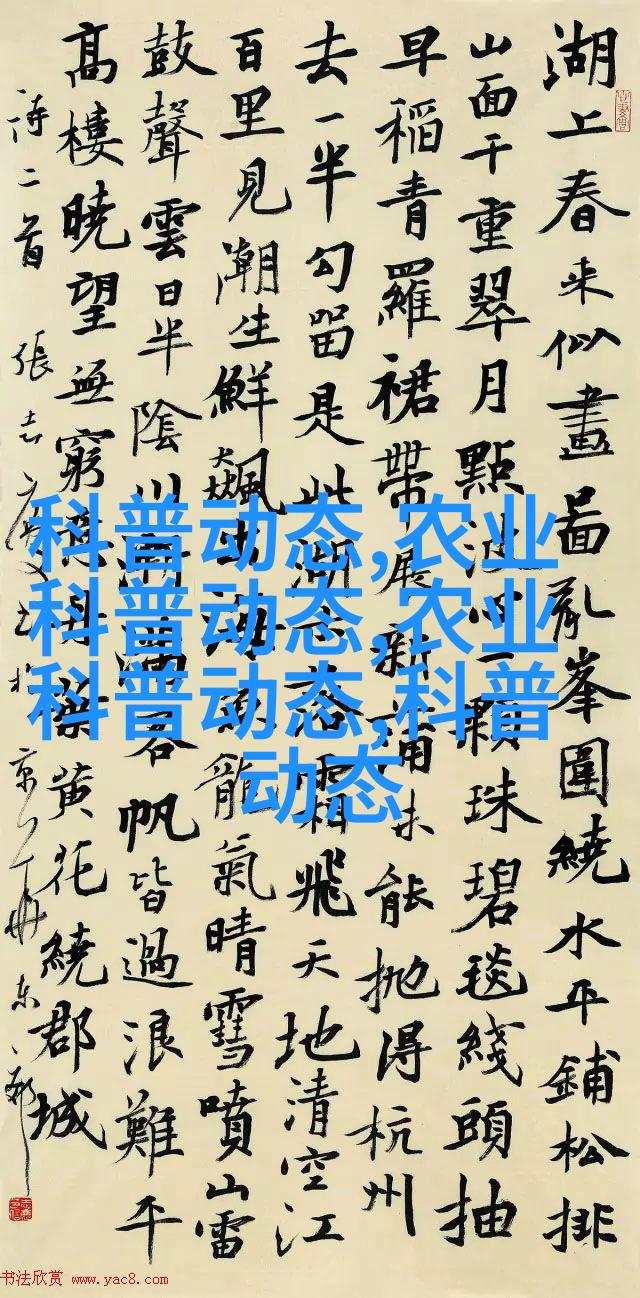 湖上春来似畫啚亂峯圍繞水平鋪松排
山面千重翠月點波心一顆珠碧毯綫頭抽
早稻青羅裙帶展新蒲未能抛得杭州
去一半勾留是此湖木落霜飛天地清空江
百里見潮生鮮飆出海魚龍氣晴雪噴山雷
鼓聲雲日半陰川漸滿客帆皆過浪難平
高樓曉望無窮意丹葉黄花繞郡城
詩二首 張志慶
科普动态,农业
科普动态,农业
科普动态,科普
动态
书法欣赏 www.yac8.com